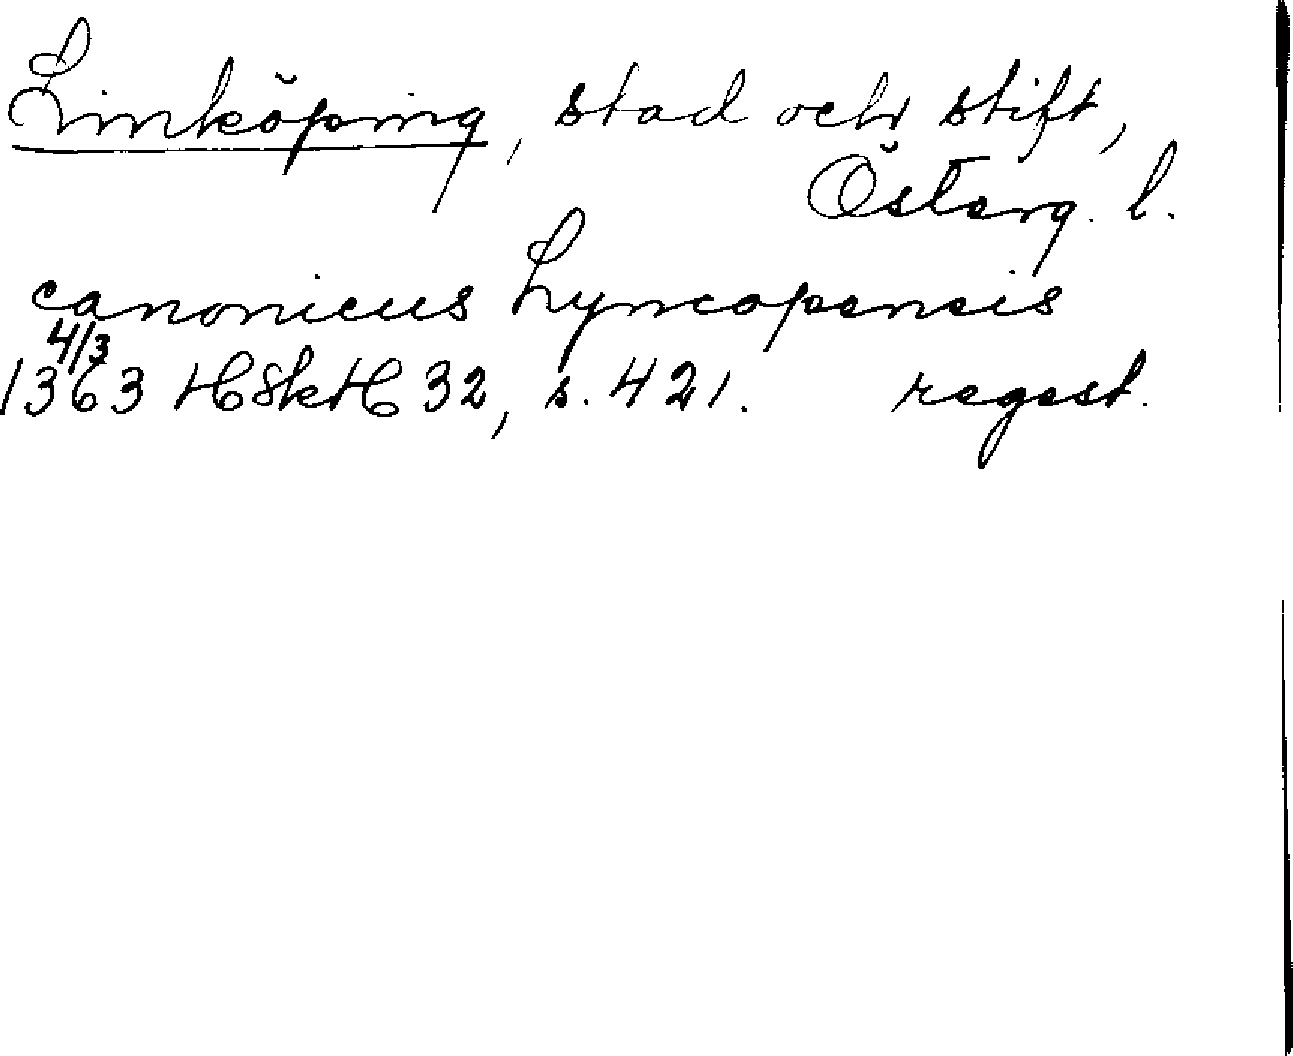 Linköping, stad och stift,
Österg. l.
canonicus Lyncopensis
4/3
1363 HSkH 32, s. 421. regest.